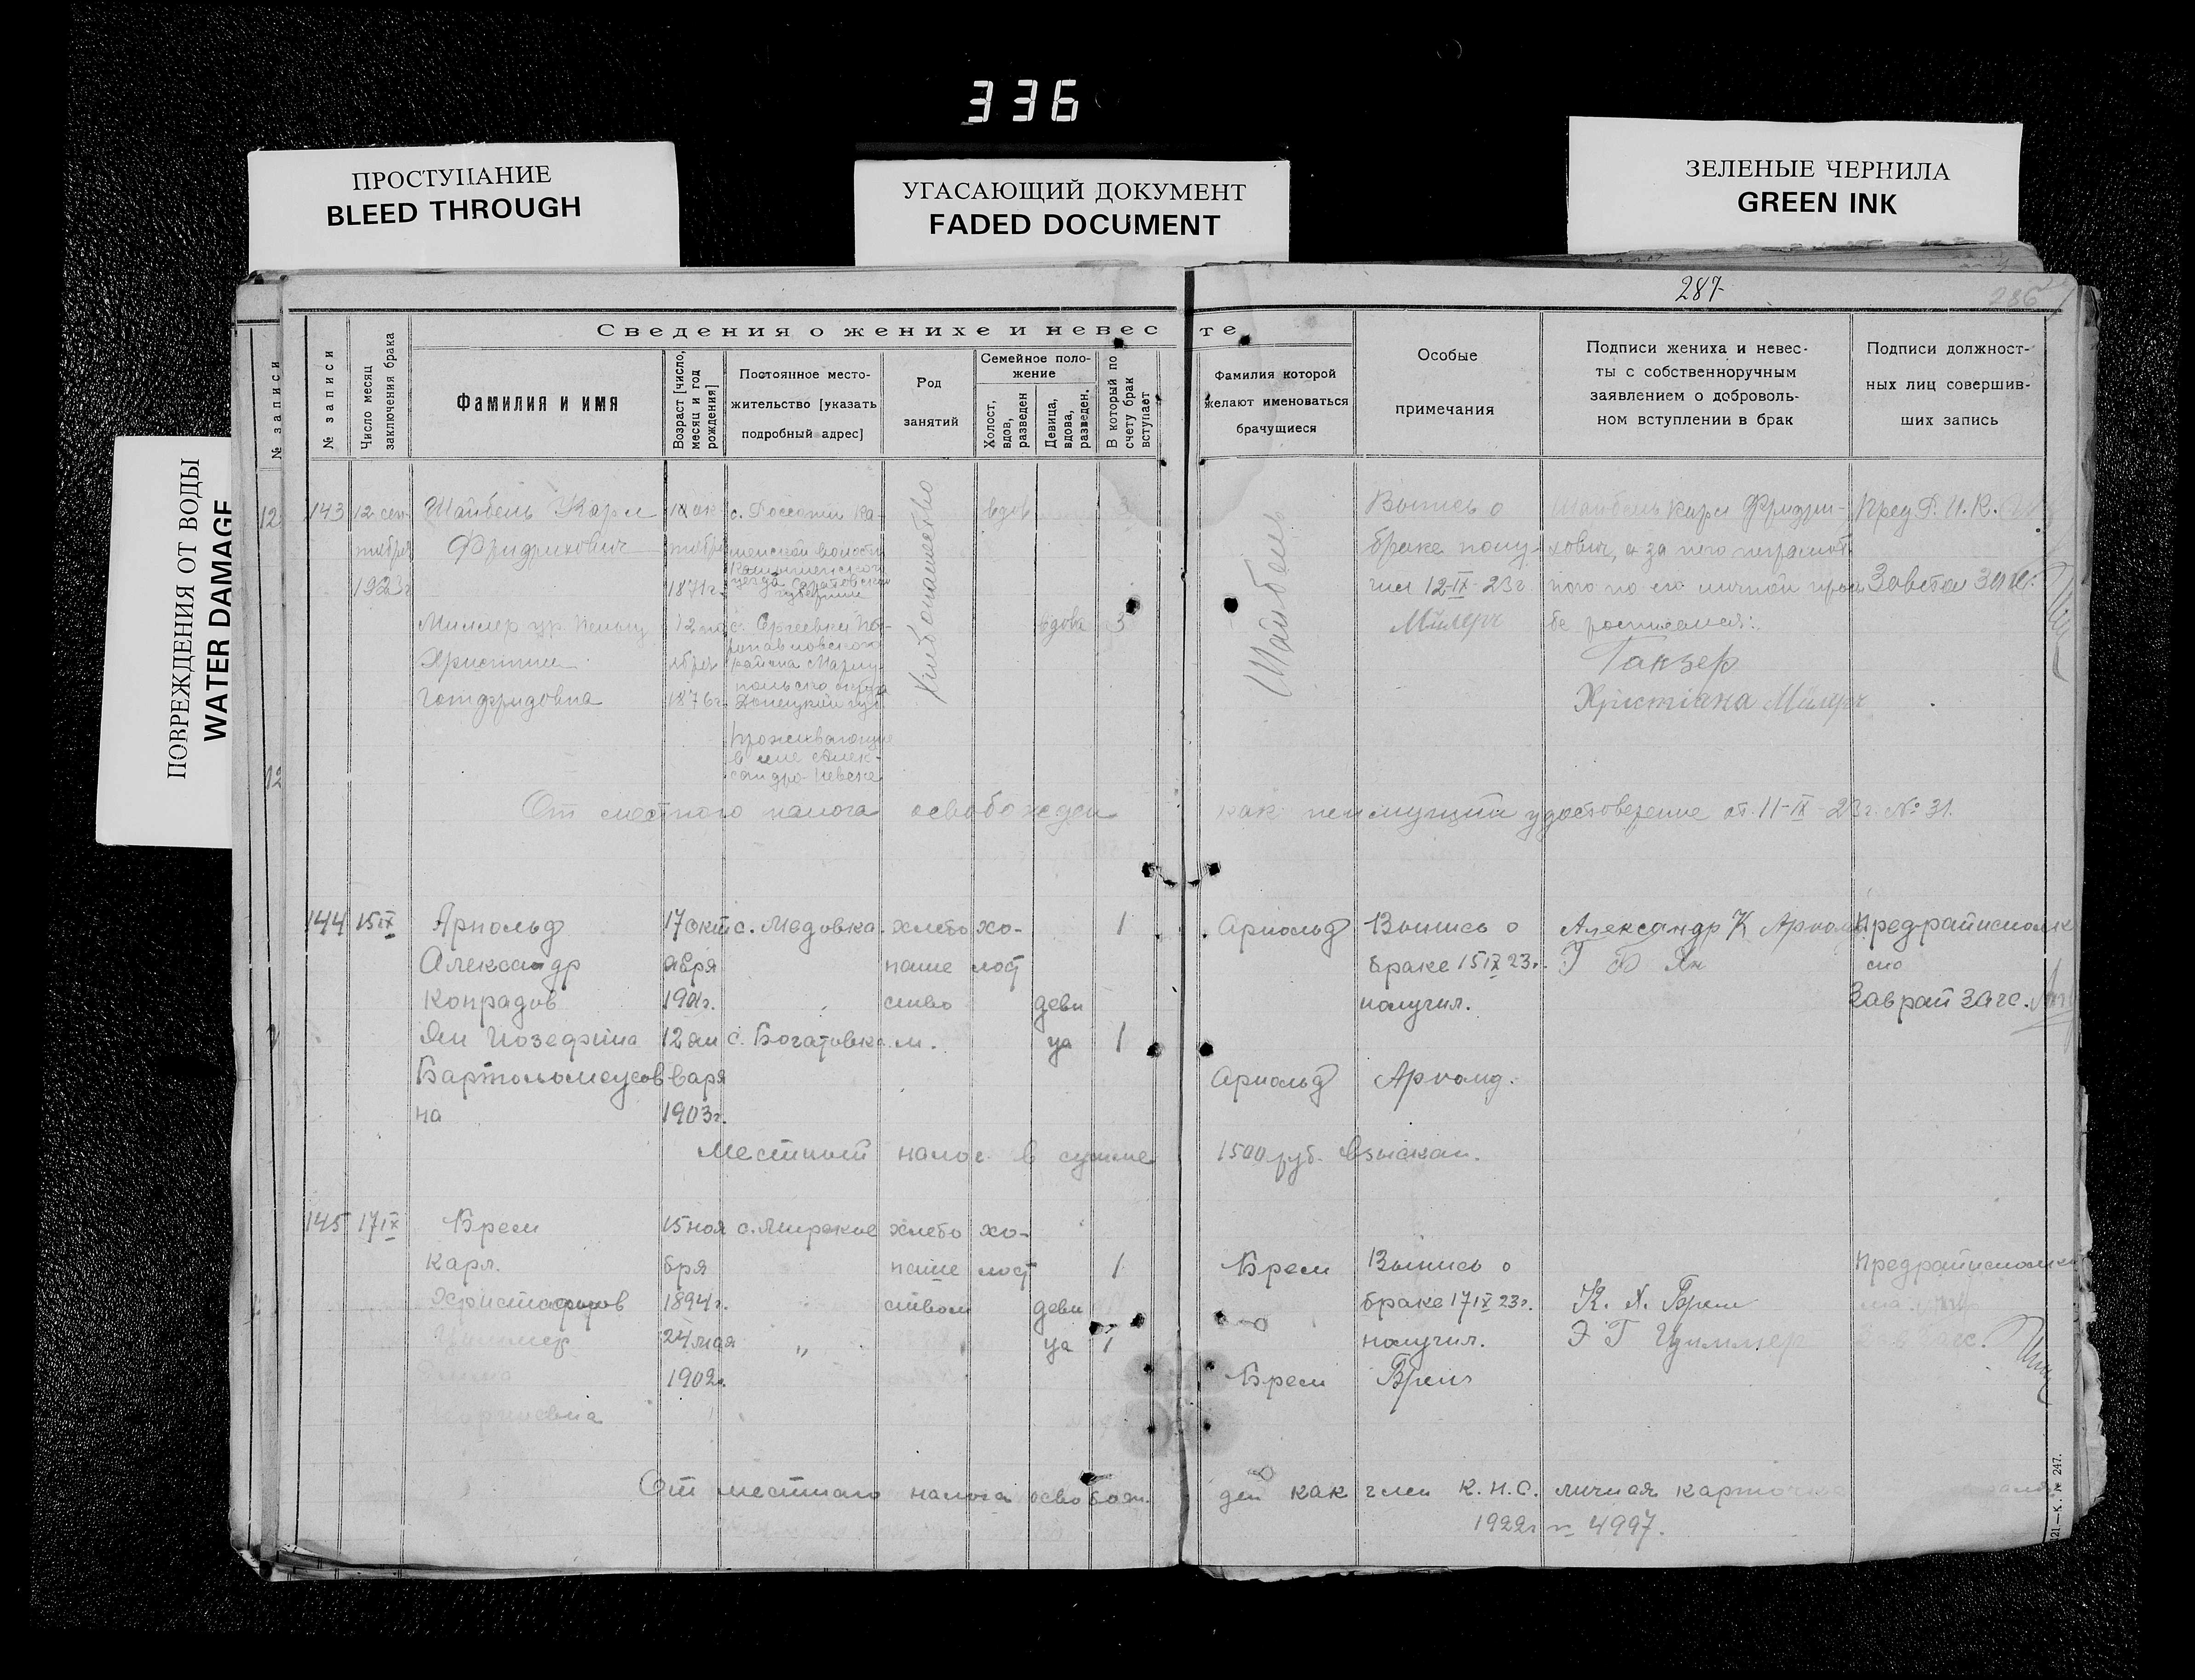 336
ПРОСТУПАНИЕ
BLEED THROUGH
УГАСАЮЩИЙ ДОКУМЕНТ
FADED DOCUMENT
ЗЕЛЕНЫЕ ЧЕРНИЛА
GREEN INK
ПОВРЕЖДЕНИЯ ОТ ВОДЫ
WATER DAMAGE
287
286
Сведения о женихе и невесте
№ записи
№ записи
Число месяц заключения брака
Фамилия и имя
Возраст [число, месяц и год рождения]
Постоянное место-
жительство [указать
подробный адрес]
Род
занятий
Семейное поло-
жение
Холост, вдов, разведен
Девица, вдова, разведен.
В который по счету брак вступает
Фамилия которой
желают именоваться
брачущиеся
Особые
примечания
Подписи жениха и невес-
ты с собственноручным
заявлением о доброволь-
ном вступлении в брак
Подписи должност-
ных лиц совершив-
ших запись
12
143 12 сен-
тября
1923г
Шайбель Карл
Фридрихович
18 ок
тября
1871г.
с. Россоши Ка-
менской волости
Камышинского
уезда Саратовской
губернии
Хлебопашество
вдов
Шайбель
Выпись о
браке полу-
чил 12-IX-23г
Милерч
Шайбель Карл Фридри-
хович, а за него неграмот
ного по его личной прось
бе росписался:
Гакзер
Христіана Милерч
Пред Р.И.К.
Миллер ур.
Христина
Готфридовна
1876г.
с. Сргеевка
района Мариу-
польского округа
Донецкой губ
проживающие
в
сандро-Невске
вдова 3
От местного налога освобожден как неимущий удостоверение от 11-IX-23г. № 31.
144 15 IX
Арнольд
Александр
Конрадов
17 окт
ября
1901г.
с. Медовка.
хлебо
паше
ство
хо-
лост
1
Арнольд
Выпись о
браке 15 IX 23г.
получил.
Александр К Арнольд
Г Б Ян
Предрайисполк
Заврай Загс.
Ян Иозефина
Бартоломеусов
на
12 ян
варя
1903г.
с. Богатовка
деви
ца
1
Арнольд
Арнолд.
Местный налог в сумме 1500 руб. взыскан.
145 17 IX
Брем
Карл.
Христофоров
15 ноя
бря
1894г.
с. Мирское
хлебо
паше
ством
хо-
лост
1
Брем
Выпись о
браке 17 IX 23г.
получил.
К. Х. Брем
Э Г Циммер
Предрайисполко
Циммер
24 мая
1902г.
"
деви
ца
1
Брем
Брем
От местнаго налога освобож.
ден как член К.Н.С. личная карточка
1922г № 4997.
21.—К. № 247.